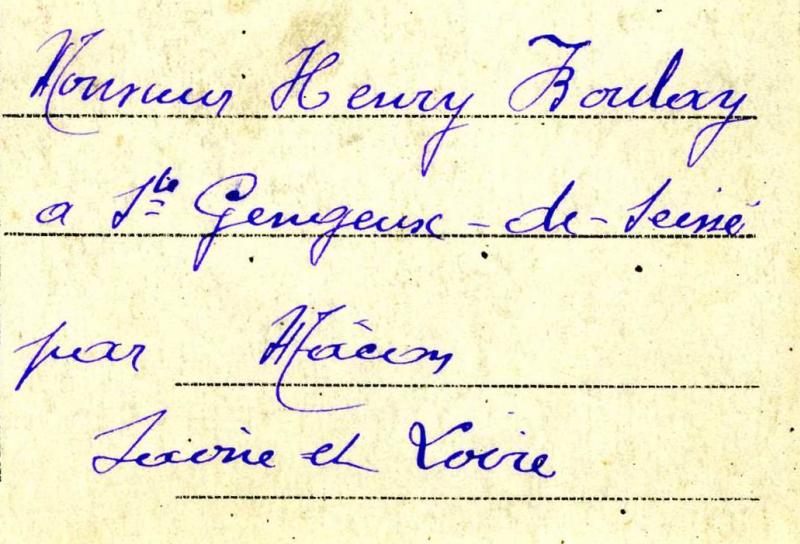 Monsieur Henry Boulay
a Ste Gengeux-de-Scissé
par Mâcon
Saone et Loire